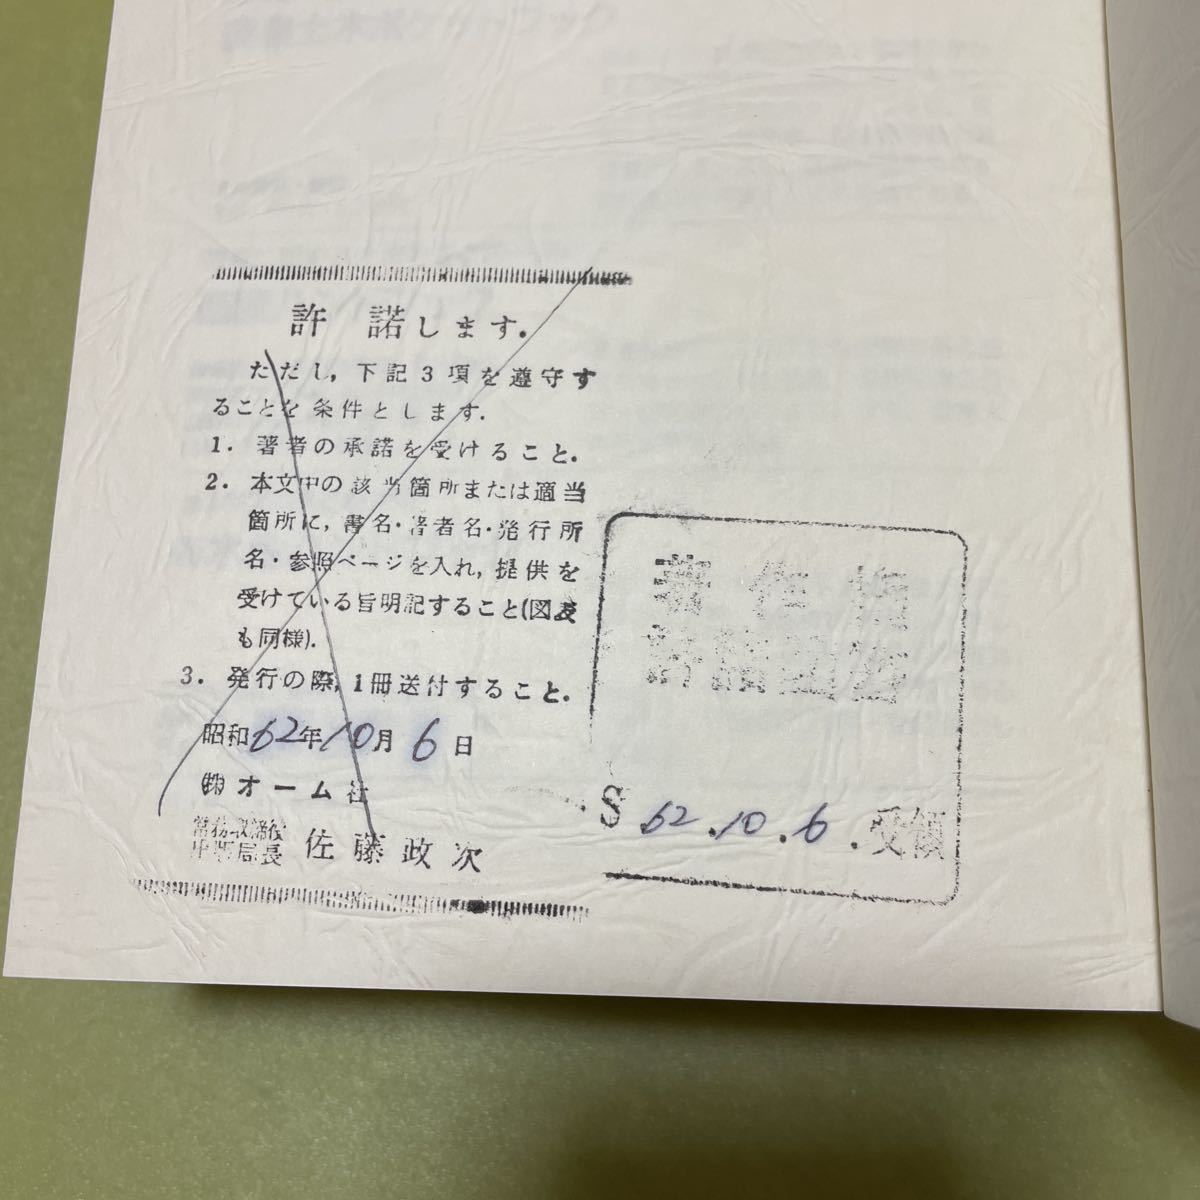 許諾します.
ただし, 下記3項を遵守す
ることを条件とします.
1. 著者の承諾を受けること.
2. 本文中の該当箇所または適当
箇所に, 書名・著者名・発行所
名・参照ページを入れ, 提供を
受けている旨明記すること(図表
も同様).
3. 発行の際, 1冊送付すること.
昭和62年10月6日
㈱オーム社
常務取締役
出版局長 佐藤政次
著作権
S 62.10.6.受領